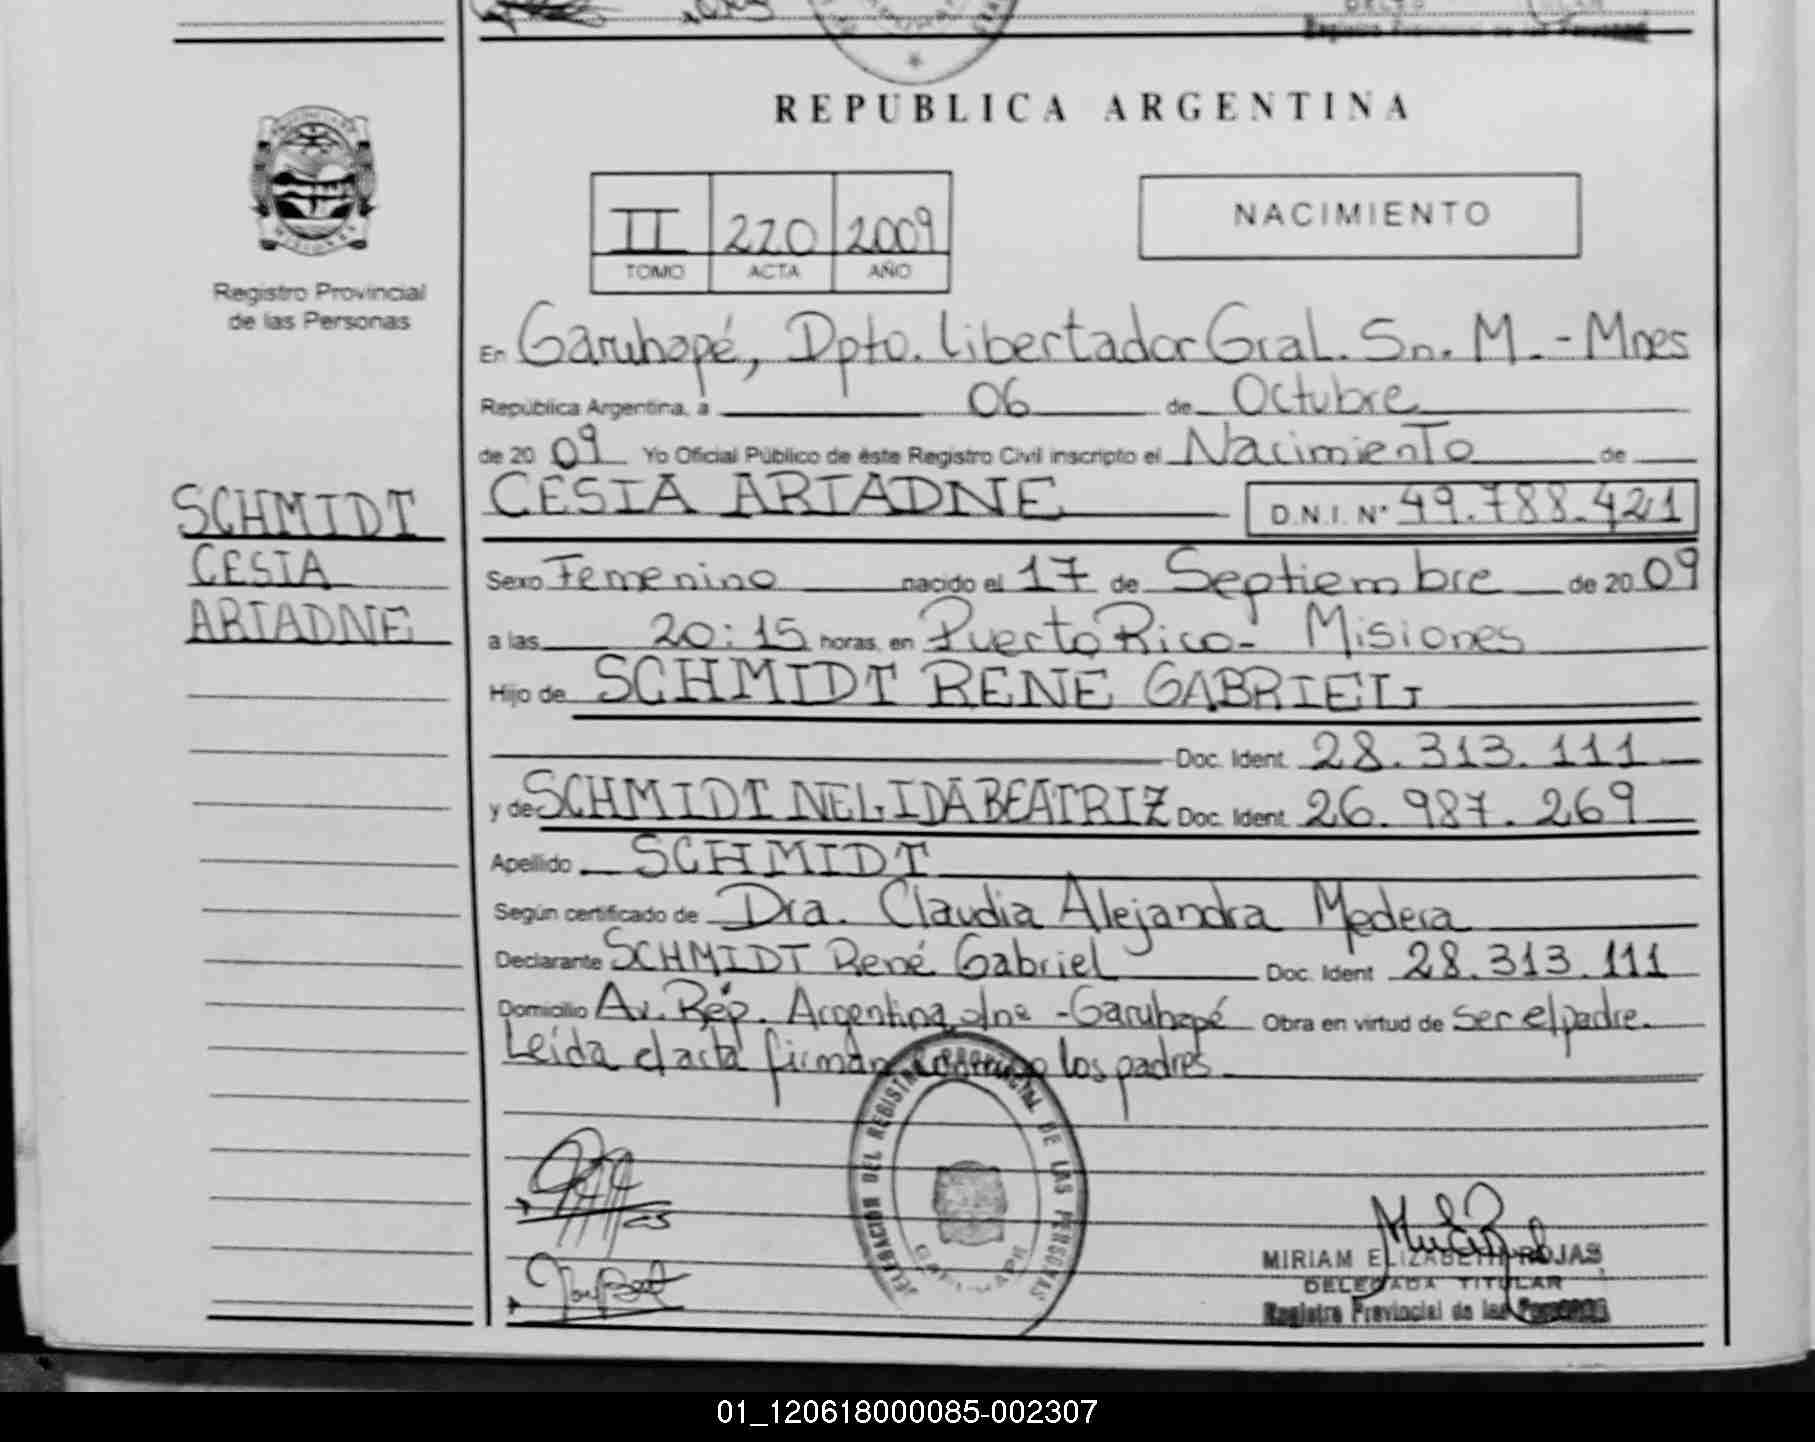 REPUBLICA ARGENTINA
II 220 2009
TOMO ACTA AÑO
NACIMIENTO
Registro Provincial
de las Personas
En Garuhapé, Dpto. Libertador Gral. Sn. M. - Mnes
República Argentina, a 06 de Octubre
de 20 09 Yo Oficial Público de éste Registro Civil inscripto el Nacimiento de
CESIA ARIADNE D.N.I. N° 49.788.421
SCHMIDT
CESIA
ARIADNE
Sexo Femenino nacido el 17 de Septiembre de 20 09
a las 20:15 horas, en Puerto Rico - Misiones
Hijo de SCHMIDT RENE GABRIEL
Doc. Ident. 28.313.111
y de SCHMIDT NELIDA BEATRIZ Doc. Ident. 26.987.269
Apellido SCHMIDT
Según certificado de Dra. Claudia Alejandra Medera
Declarante SCHMIDT René Gabriel Doc. Ident 28.313.111
Domicilio Av. Rep. Argentina s/nº - Garuhapé Obra en virtud de ser el padre.
Leída el acta firman los padres
DELEGACION DEL REGISTRO PROVINCIAL DE LAS PERSONAS
MIRIAM ELIZABETH ROJAS
DELEGADA TITULAR
Registro Provincial de las Personas
01_120618000085-002307